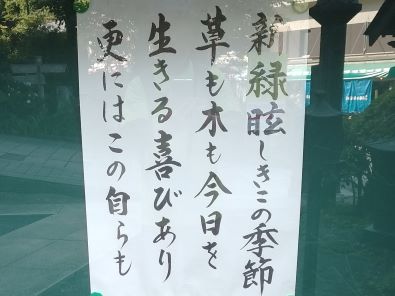 新緑眩しきこの季節
草も木も今日を
生きる喜びあり
更にはこの自らも